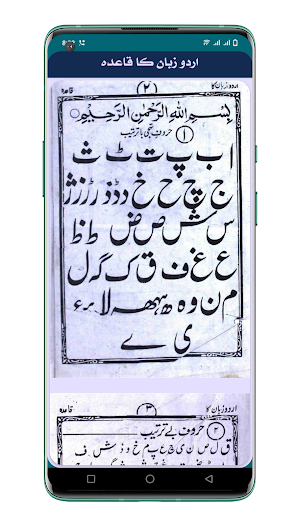 اردو زبان کا قاعدہ
اردو زبان کا ۲ قاعدہ
بسم اللہ الرحمٰن الرحیم
۱ حروف تہجی با ترتیب
ا ب پ ت ٹ ث
ج چ ح خ د ڈ ذ ر ڑ ز ژ
س ش ص ض ط ظ
ع غ ف ق ک گ ل
م ن و ہ ھ لا ء
ی ے
اردو زبان کا ۳ قاعدہ
۲ حروف بے ترتیب